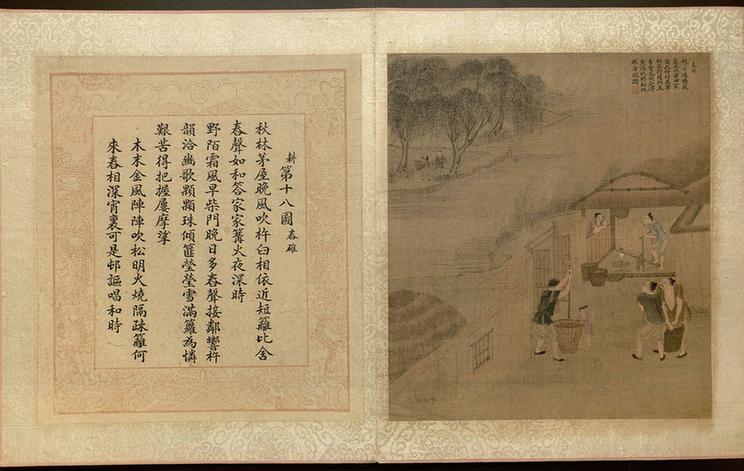 耕第十八圖 舂碓
秋林茅屋晚風吹杵臼相依近短籬比舍
舂聲如和答家家篝火夜深時
野陌霜風早柴門晚日多舂聲接鄰響杵
韻洽幽歌顆顆珠傾篚瑩瑩雪滿籮為憐
艱苦得把握屢摩挲
木末金風陣陣吹松明火燒隔疎籬何
來舂相深宵裏可是邨謳唱和時
舂碓